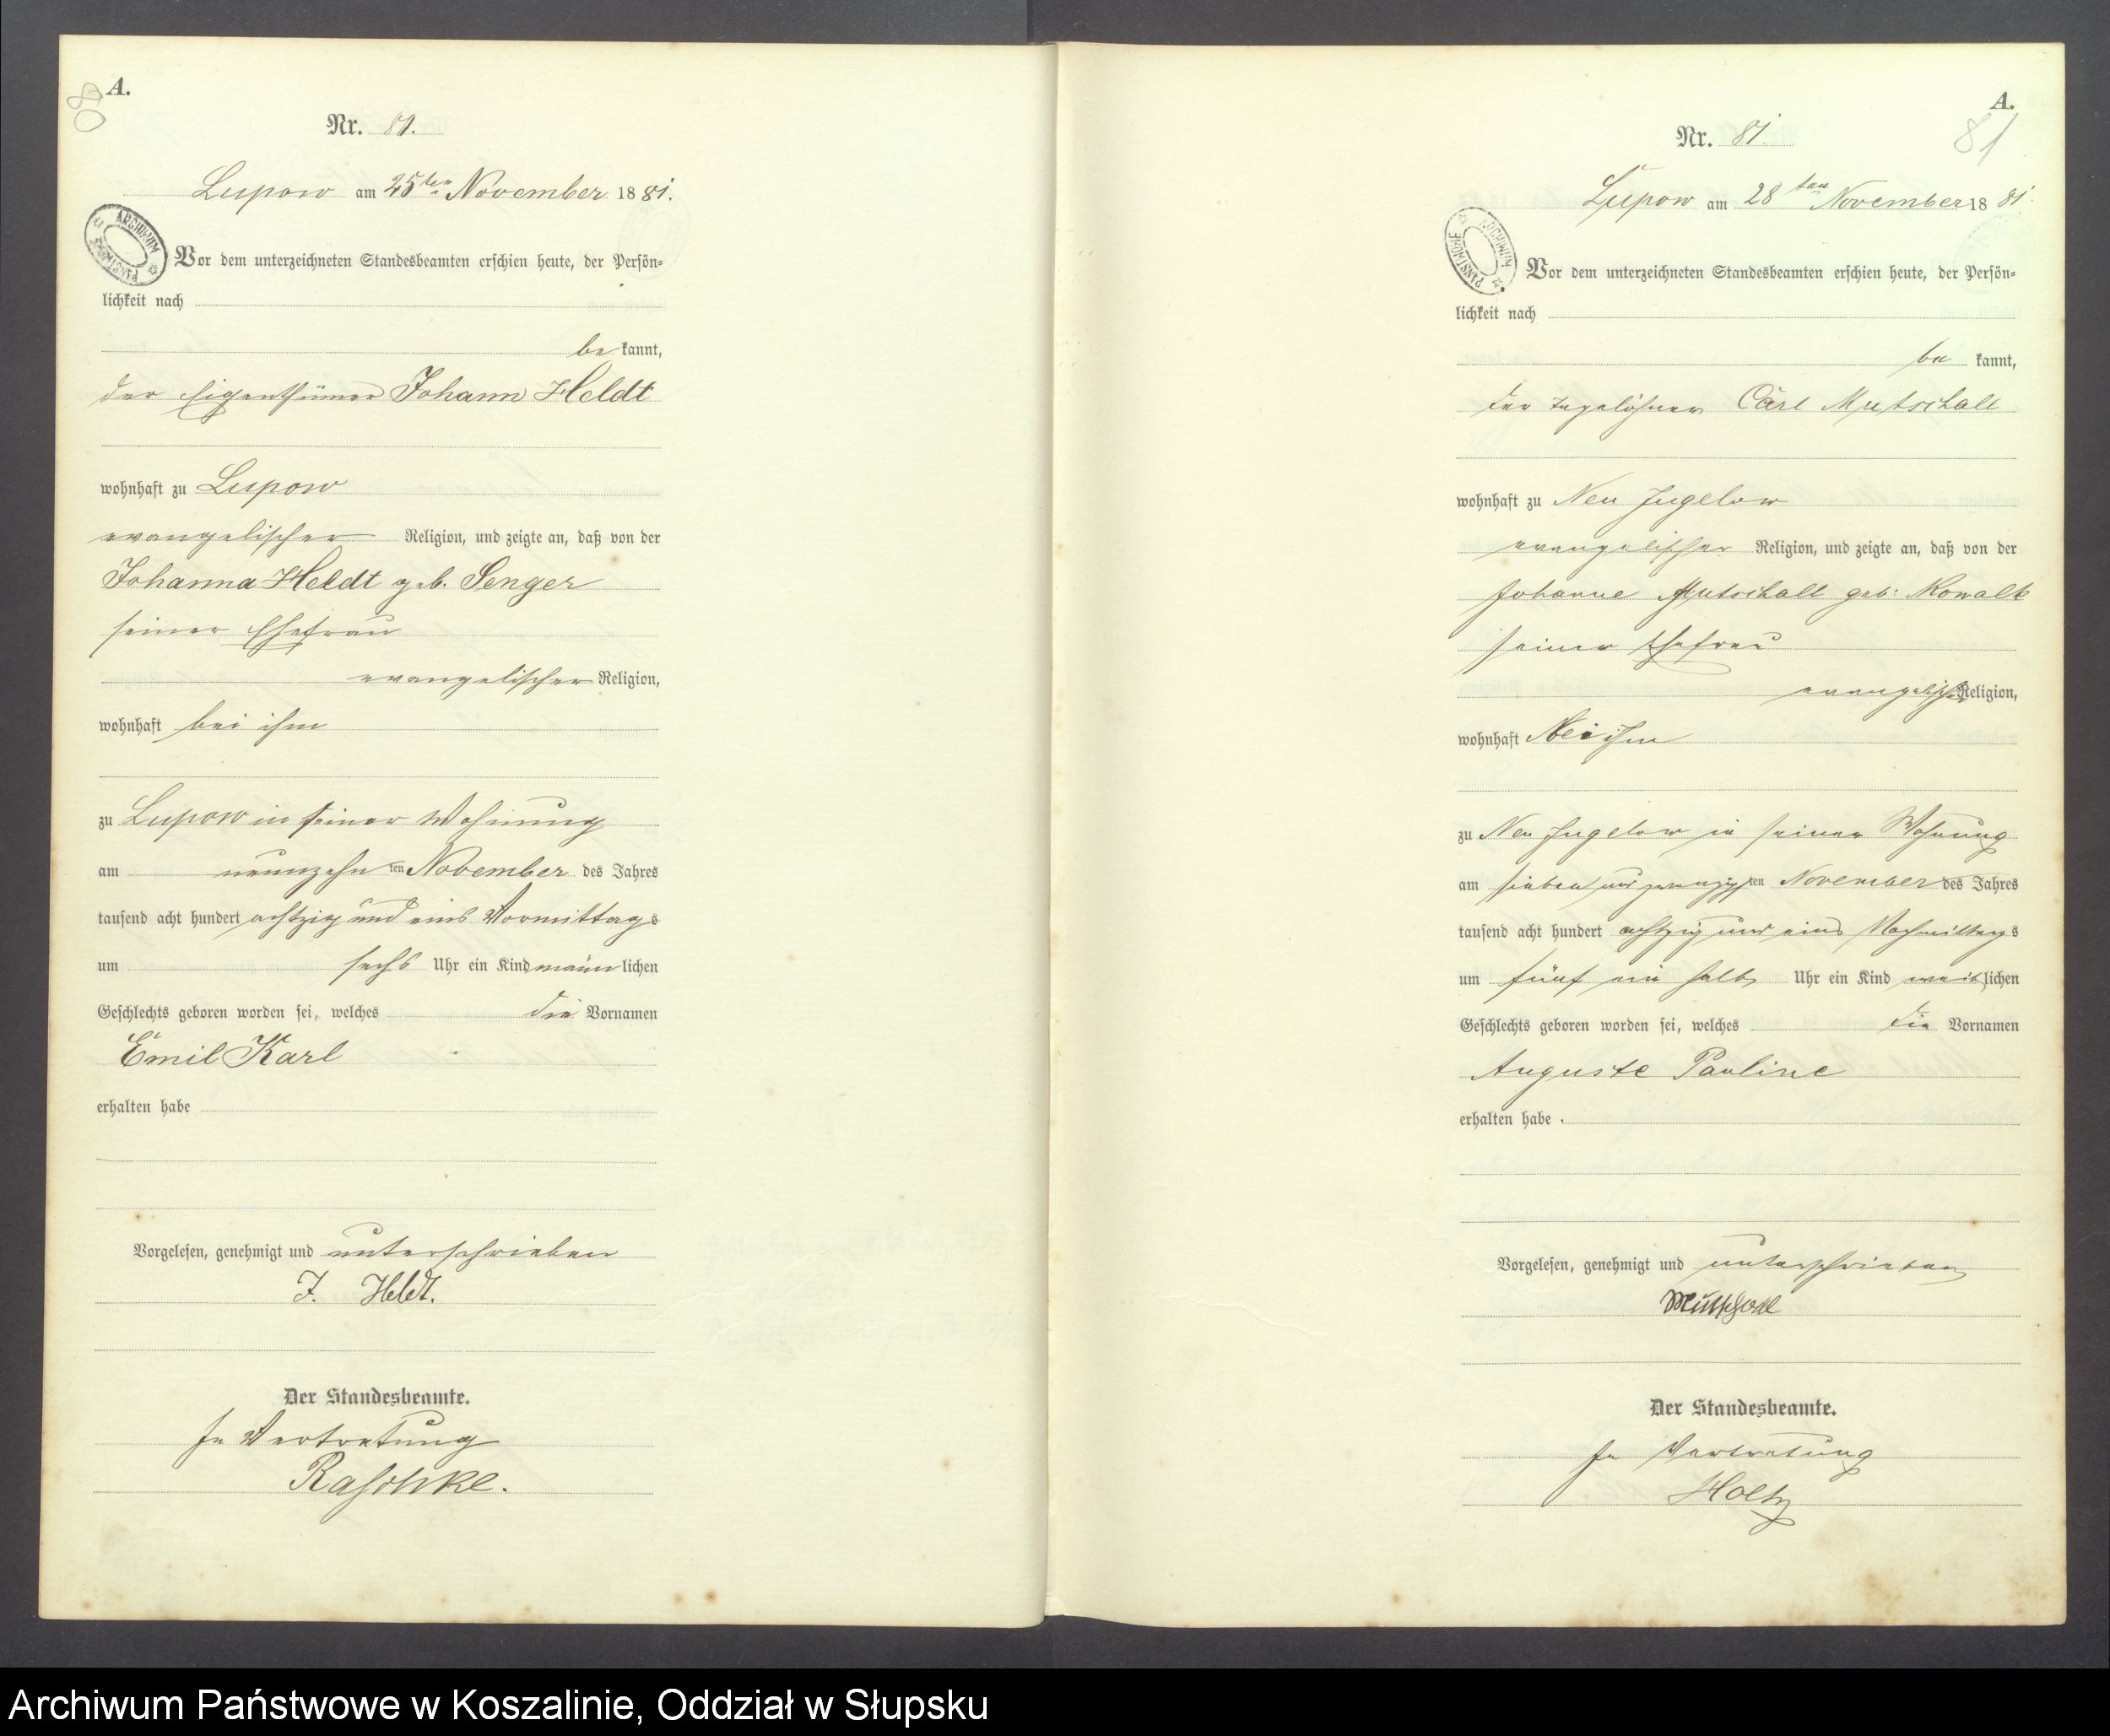 80
A.
Nr. 81.
Lupow am 25ten November 1881.
ARCHIWUM PAŃSTWOWE
Vor dem unterzeichneten Standesbeamten erschien heute, der Persön-
lichkeit nach
be kannt,
der Eigenthümer Johann Heldt
wohnhaft zu Lupow
evangelischer Religion, und zeigte an, daß von der
Johanna Heldt geb. Senger
seiner Ehefrau
evangelischer Religion,
wohnhaft bei ihm
zu Lupow in seiner Wohnung
am neunzehn ten November des Jahres
tausend acht hundert achtzig und eins Vormittags
um sechs Uhr ein Kind männlichen
Geschlechts geboren worden sei, welches die Vornamen
Emil Karl
erhalten habe
Vorgelesen, genehmigt und unterschrieben
J. Heldt.
Der Standesbeamte.
In Vertretung
Raschke.
A.
81
Nr. 81
Lupow am 28ten November 1881.
ARCHIWUM PAŃSTWOWE
Vor dem unterzeichneten Standesbeamten erschien heute, der Persön-
lichkeit nach
be kannt,
der Tagelöhner Carl Mutschall
wohnhaft zu Neu Jugelow
evangelischer Religion, und zeigte an, daß von der
Johanne Mutschall geb: Kowalk
seiner Ehefrau
evangelischer Religion,
wohnhaft bei ihm
zu Neu Jugelow in seiner Wohnung
am sieben und zwanzig ten November des Jahres
tausend acht hundert achtzig und eins Nachmittags
um fünf ein halb Uhr ein Kind weiblichen
Geschlechts geboren worden sei, welches die Vornamen
Auguste Pauline
erhalten habe.
Vorgelesen, genehmigt und unterschrieben
Mutschall
Der Standesbeamte.
In Vertretung
Holtz
Archiwum Państwowe w Koszalinie, Oddział w Słupsku